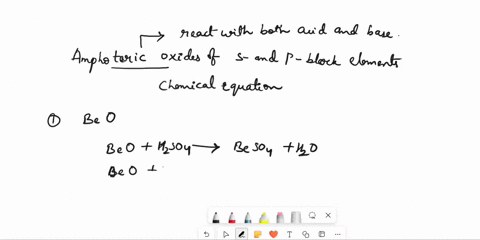 react with both acid and base.
Amphoteric oxides of s- and p-block elements
Chemical equation
① BeO
BeO + H₂SO₄ → BeSO₄ + H₂O
BeO +